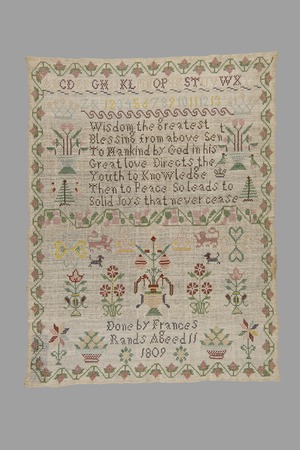 CD GH KL OP ST WX
Z& 1 2 3 4 5 6 7 8 9 10 11 12 13 14
Wisdom the Greatest
Blessing from above Sent
To Mankind by God in his
Great love Directs the
Youth to Knowledge
Then to Peace So leads to
Solid Joys that never cease
Done by Frances
Rands Aged 11
1809